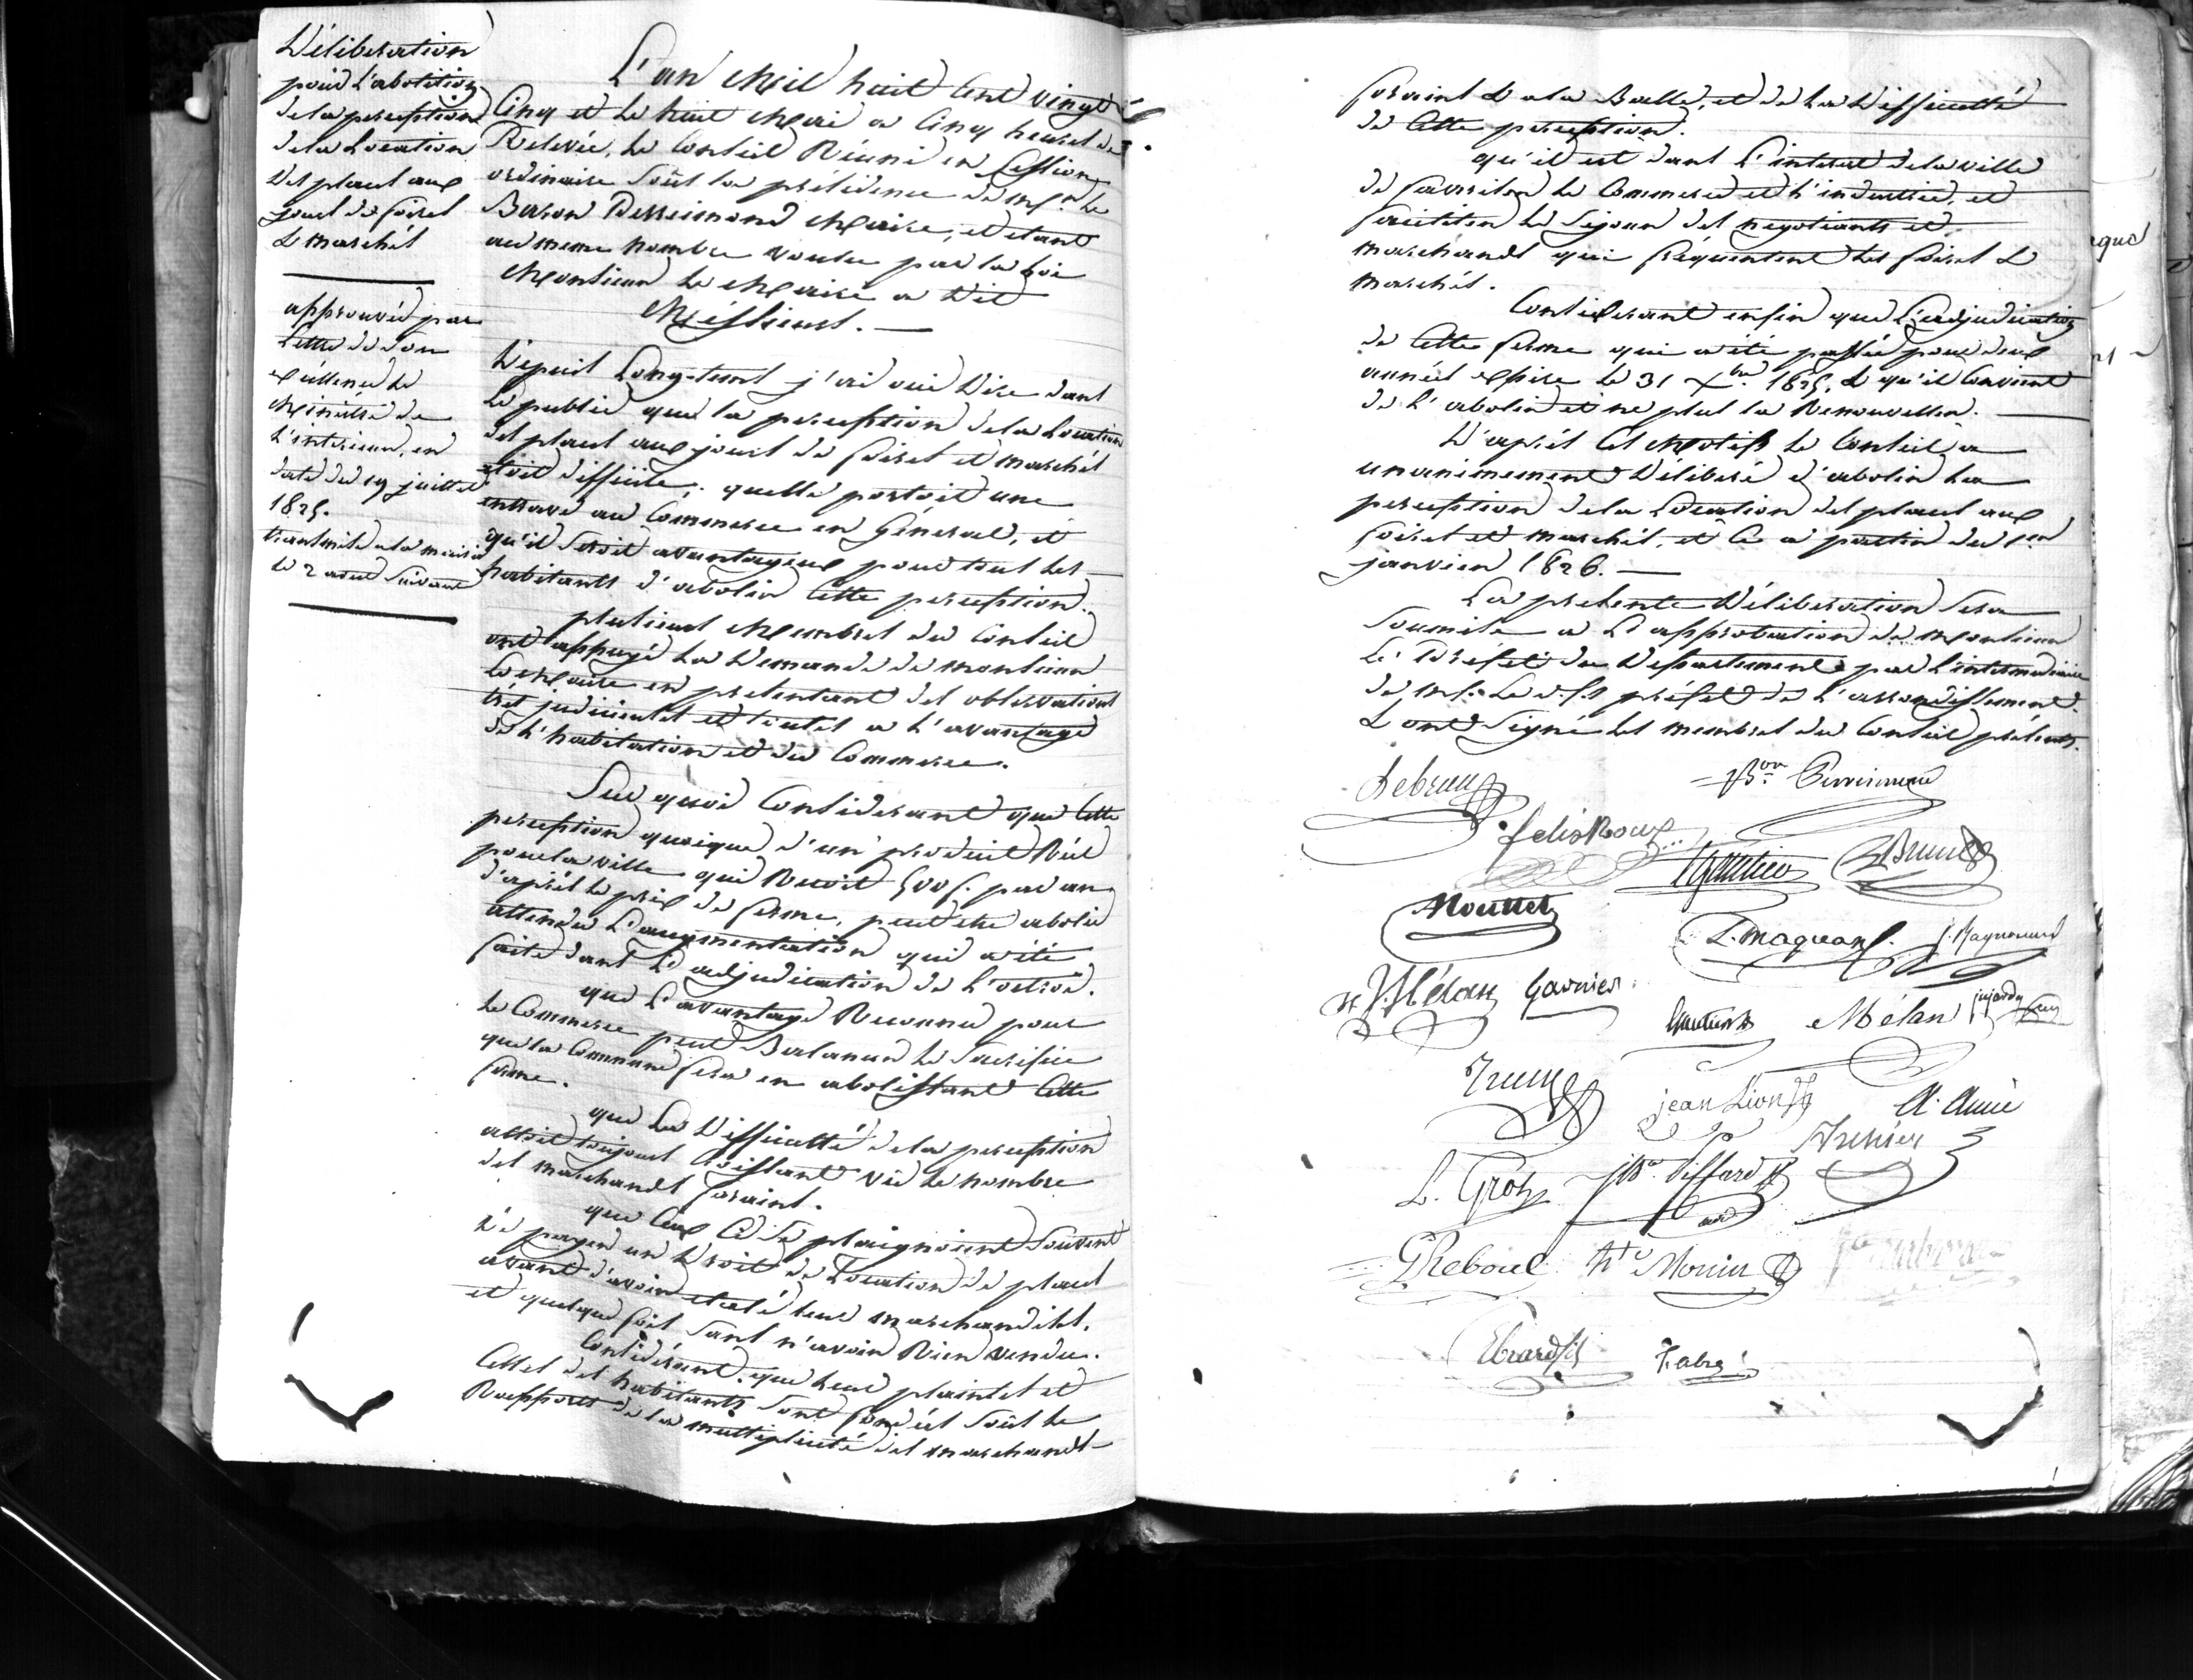 Déliberation
pour l'abolition
de la perception
de la Location
des places aux
jours de foires
& marchés
approuvé par
Lettre de son
exéllence le
Ministre de
l'interieur, en
date du 19 juillet
1825.
transmise a la mairie
le 2 aout suivant
L'an Mil huit Cent vingt
Cinq et le huit Mai a Cinq heures de
Relevée, le Conseil Réuni en Cession
ordinaire Soûs la présidence de Mr. le
Baron Perreimond Maire, et etant
au meme nombre voulu par la loi
Monsieur le Maire a dit
Messieurs. —
Depuis Long-tems j'ai oui dire dans
le public que la perception de la Location
des places aux jours de foires et marchés
etoit difficile, quelle portoit une
entrave au Commerce en Général, et
qu'il seroit avantageux pour tous les
habitants d'abolir Cette perception.
plusieurs Membres du Conseil
ont appuyé la Demande de monsieur
Le Maire en presentant des observations
très judicieuses et toutes a l'avantage
de l'habitation et du Commerce.
Sur quoi Considerant que Cette
perception quoique d'un produit Réel
pour la ville qui Recoit 500 f. par an
d'après le prix de ferme, peut etre abolie
attendu L'augmentation qui a été
faite dans L'adjudication de l'octroi.
que L'avantage Reconnu pour
le Commerce peut Balancer le Sacrifice
que la Commune fera en abolissant Cette
ferme.
que La Difficulté de la perception
alloit toujours Croissant vû le nombre
des marchands forains.
que Ceux Ci se plaignoient Souvent
de payer un Droit de Location de places
avant d'avoir etalé leurs marchandises.
et quelque fois Sans n'avoir Rien vendu.
Considérant que leurs plaintes et
Celles des habitants sont fondées Soûs le
Rapport de la multiplicité des marchands
forains & a la Balle, et de La Difficulté
de Cette perception.
qu'il est dans l'interet de la ville
de favoriser le Commerce et l'industrie, et
faciliter le Sejour des negotiants et
marchands qui fréquentent les foires &
marchés.
Considerant enfin que L'adjudication
de Cette ferme qui a été passée pour deux
années expire le 31 Xbre 1825, & qu'il Convient
de l'abolir et ne plus la Renouveller.
D'après Ces Motifs le Conseil a
unanimement Déliberé d'abolir La
perception de la Location des places aux
foires et marchés, et Ce a partir du 1er
janvier 1826. —
La presente Déliberation Sera
Soumise a L'approbation de Monsieur
Le Préfet du Departement par l'intermediaire
de Mr. Le s. préfet de l'arrondissement.
& ont Signé les membres du Conseil présents.
Lebrun
Bon Perreimond
felix Roux
Gautier
Brun
Mouttet
L. Maquan
J. Raynouard
Mélan
Garnier
Gautier
Mélan
Truc
jean Lion
A. Amic
L. Gros
Jh Diffard
Grenier
G Reboul
hte Monier
Ebrard fils
Fabre